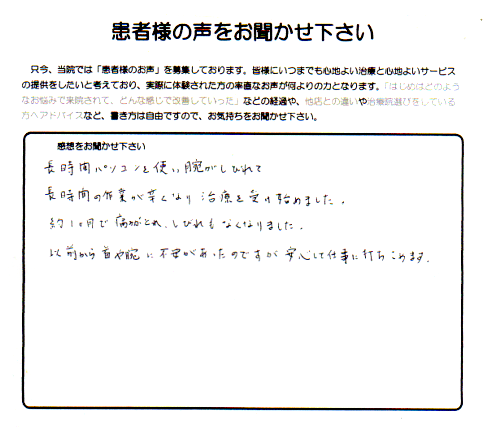 患者様の声をお聞かせ下さい
只今、当院では「患者様のお声」を募集しております。皆様にいつまでも心地よい治療と心地よいサービス
の提供をしたいと考えており、実際に体験された方の率直なお声が何よりの力となります。「はじめはどのよう
なお悩みで来院されて、どんな感じで改善していった」などの経過や、他店との違いや治療院選びをしている
方へアドバイスなど、書き方は自由ですので、お気持ちをお聞かせ下さい。
感想をお聞かせ下さい
長時間パソコンを使い腕がしびれて
長時間の作業が辛くなり治療を受け始めました。
約1ヶ月で痛みがとれ、しびれもなくなりました。
以前から首や腕に不安があったのですが安心して仕事に打ちこめます。